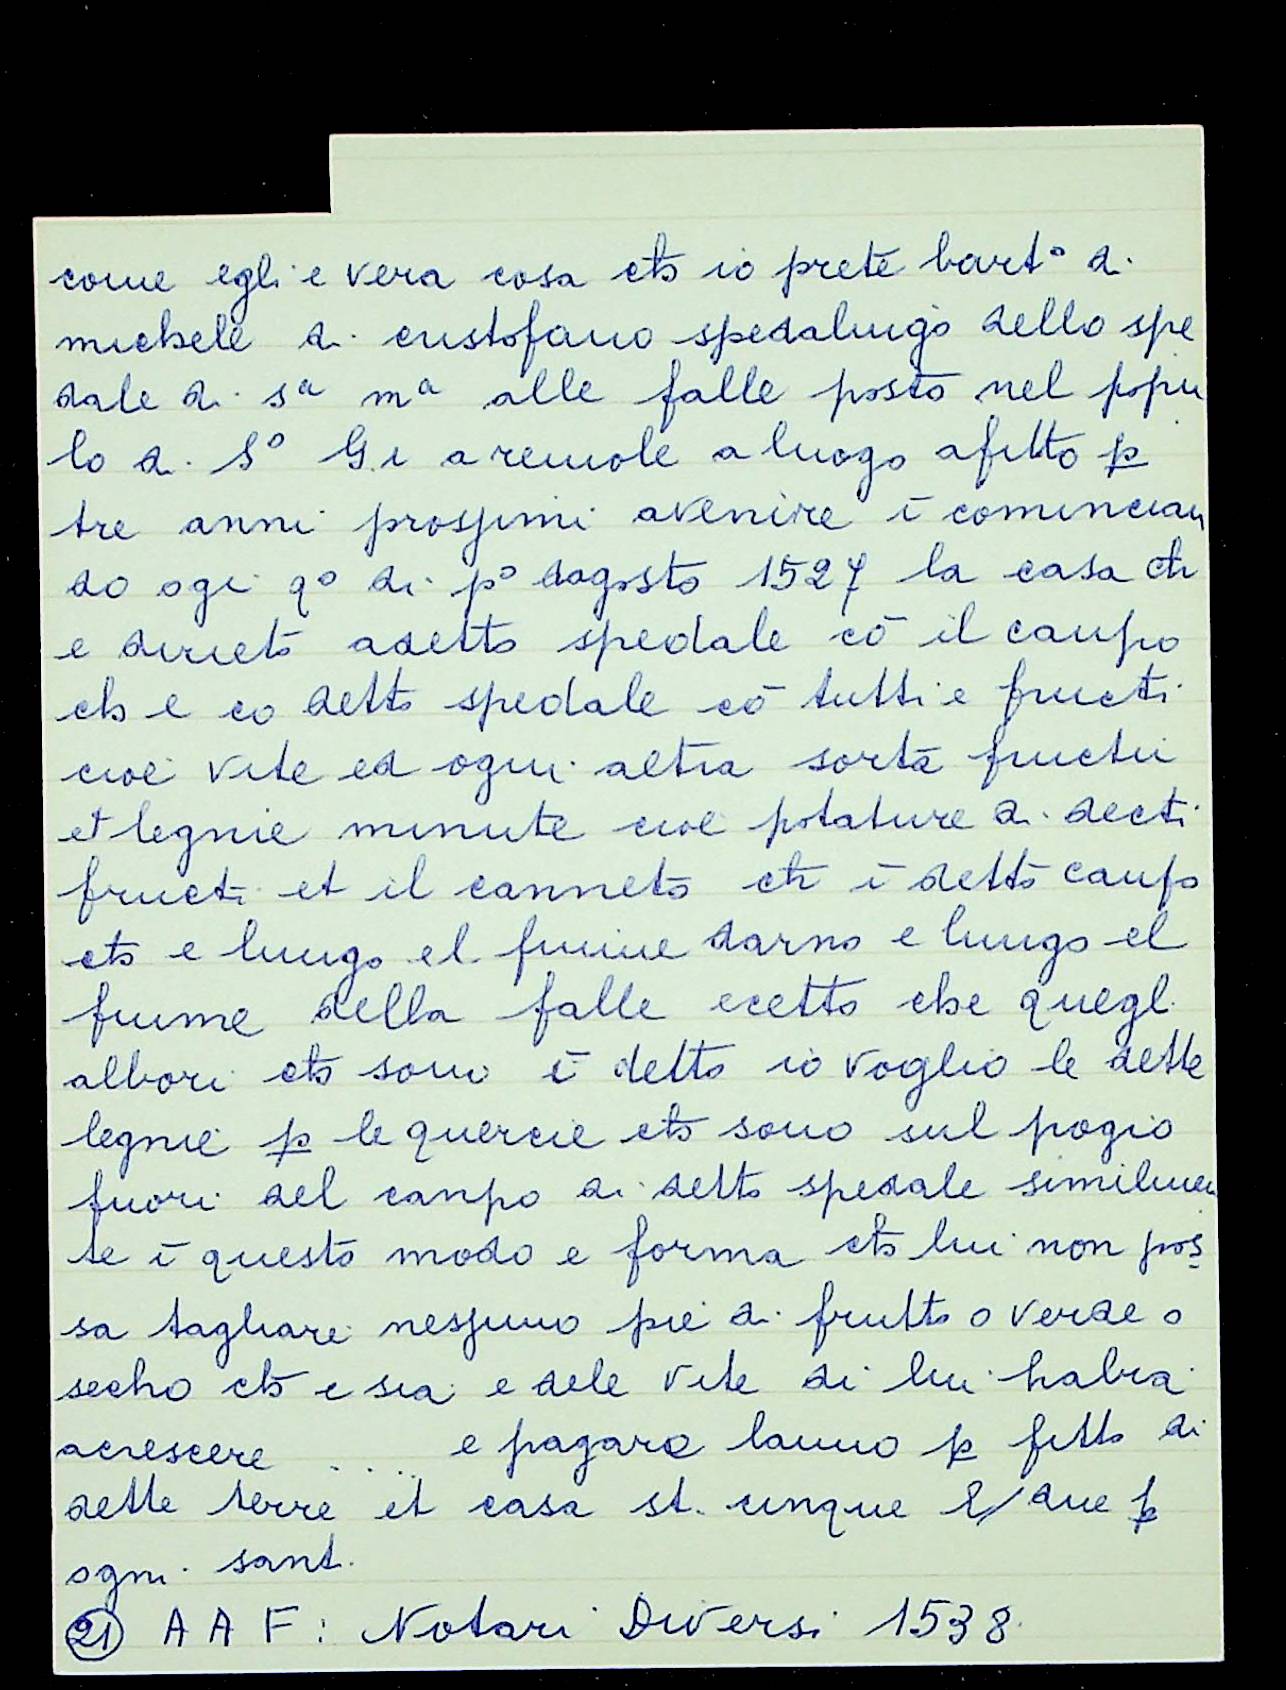 come egli e vera cosa ch̄ io prete bart° di
michele di cristofano spedalingo dello spe
dale di sª mª alle falle posto nel popu
lo di S° Gi a remole a luogo afitto p̱
tre anni prossimi avenire ī comincian
do ogi q° di p° dagosto 1527 la casa ch̄
e dirieto adetto spedale cō il campo
ch̄ e co detto spedale cō tutti e fructi
cioe vite ed ogni altra sorta fructi
et legnie minute cioe potature di decti
fructi et il canneto ch̄ ī detto campo
ch̄ e lungo el fiume darno e lungo el
fiume della falle ecetto che quegl
albori ch̄ sono ī detto io voglio le dette
legnie p̱ le quercie ch̄ sono sul pogio
fuori del canpo di detto spedale similmen
te ī questo modo e forma ch̄ lui non pos
sa tagliare nessuno pie di frutto o verde o
secho ch̄ e sia e dele vite di lui habia
acrescere .... e pagara lanno p̱ fitto di
dette terre et casa st. cinque l/ due p̱
ogni sant.
21 A A F: Notari Diversi 1538.